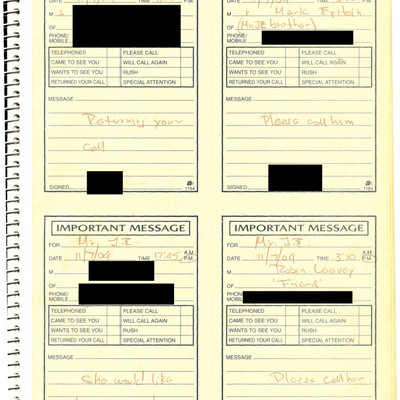 M
OF
PHONE/
MOBILE
TELEPHONED PLEASE CALL
CAME TO SEE YOU WILL CALL AGAIN
WANTS TO SEE YOU RUSH
RETURNED YOUR CALL SPECIAL ATTENTION
MESSAGE
Returning your
call
SIGNED 1184
M Mark Epstein
OF (Mr. JE brother)
PHONE/
MOBILE
TELEPHONED PLEASE CALL
CAME TO SEE YOU WILL CALL AGAIN
WANTS TO SEE YOU RUSH
RETURNED YOUR CALL SPECIAL ATTENTION
MESSAGE
Please call him
SIGNED 1184
IMPORTANT MESSAGE
FOR Mr. J.E.
DATE 11/7/04 TIME 12:45 A.M. P.M.
M
OF
PHONE/
MOBILE
TELEPHONED PLEASE CALL
CAME TO SEE YOU WILL CALL AGAIN
WANTS TO SEE YOU RUSH
RETURNED YOUR CALL SPECIAL ATTENTION
MESSAGE
She would like
IMPORTANT MESSAGE
FOR Mr. J.E.
DATE 11/7/04 TIME 3:10 A.M. P.M.
M Robin
OF "Friend"
PHONE/
MOBILE
TELEPHONED PLEASE CALL
CAME TO SEE YOU WILL CALL AGAIN
WANTS TO SEE YOU RUSH
RETURNED YOUR CALL SPECIAL ATTENTION
MESSAGE
Please call her